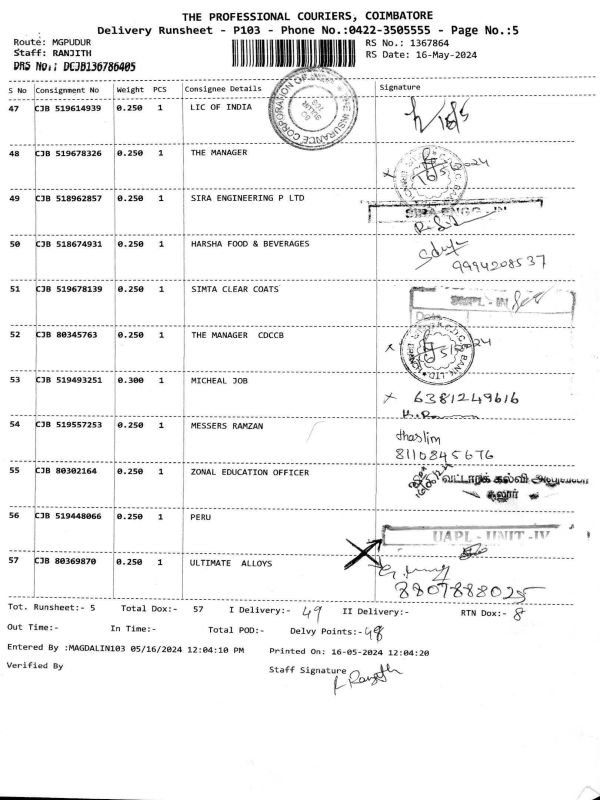 THE PROFESSIONAL COURIERS, COIMBATORE
Delivery Runsheet - P103 - Phone No.:0422-3505555 - Page No.:5
Route: MGPUDUR
Staff: RANJITH
DRS No.: DCJB136786405
RS No.: 1367864
RS Date: 16-May-2024
S No Consignment No Weight PCS Consignee Details Signature
47 CJB 519614939 0.250 1 LIC OF INDIA
48 CJB 519678326 0.250 1 THE MANAGER
49 CJB 518962857 0.250 1 SIRA ENGINEERING P LTD
SIRA ENGG - IN
50 CJB 518674931 0.250 1 HARSHA FOOD & BEVERAGES
9994208537
51 CJB 519678139 0.250 1 SIMTA CLEAR COATS
SMPL - IN
Date
52 CJB 80345763 0.250 1 THE MANAGER CDCCB
53 CJB 519493251 0.300 1 MICHEAL JOB
x 6381249616
54 CJB 519557253 0.250 1 MESSERS RAMZAN
thaslim
8110845676
55 CJB 80302164 0.250 1 ZONAL EDUCATION OFFICER
வட்டாரக் கல்வி
சூலூர்
56 CJB 519448066 0.250 1 PERU
UAPL - UNIT - IV
57 CJB 80369870 0.250 1 ULTIMATE ALLOYS
8807888025
Tot. Runsheet:- 5 Total Dox:- 57 I Delivery:- 49 II Delivery:- RTN Dox:- 8
Out Time:- In Time:- Total POD:- Delvy Points:- 48
Entered By :MAGDALIN103 05/16/2024 12:04:10 PM Printed On: 16-05-2024 12:04:20
Verified By Staff Signature